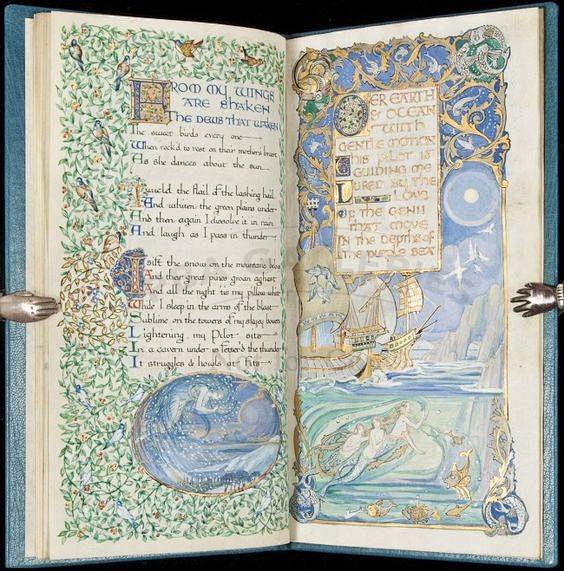 FROM MY WINGS
ARE SHAKEN
THE DEWS THAT WAKEN
The sweet birds every one
When rock'd to rest on their mothers breast
As she dances about the sun
I wield the flail of the lashing hail
And whiten the green plains under
And then again I dissolve it in rain
And laugh as I pass in thunder
I sift the snow on the mountains below
And their great pines groan aghast
And all the night tis my pillow white
While I sleep in the arms of the blast
Sublime on the towers of my skyey bowers
Lightening my Pilot sits
In a cavern under is fetter'd the thunder
It struggles & howls at fits
OVER EARTH
& OCEAN
WITH
GENTLE MOTION
THIS PILOT IS
GUIDING ME
LURED BY THE
LOVE
OF THE GENII
THAT MOVE
IN THE DEPTHS OF
THE PURPLE SEA